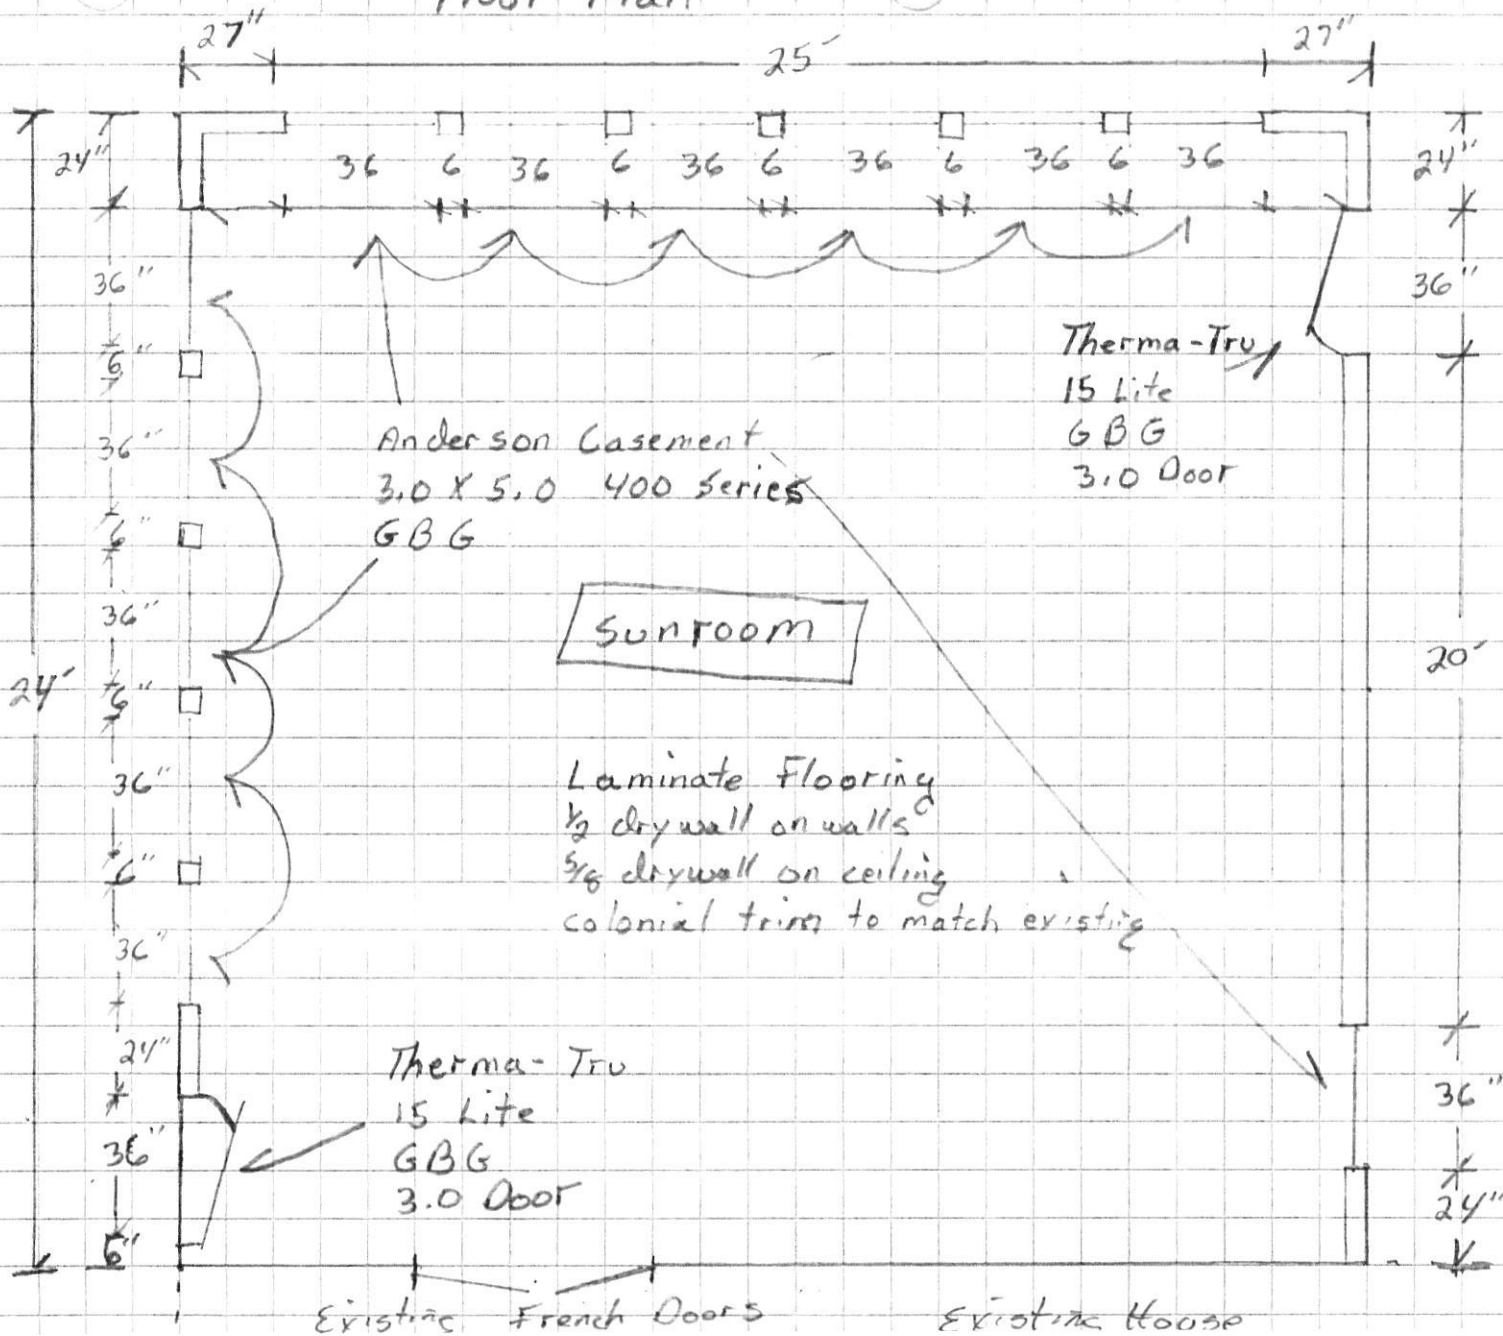 Floor Plan
27"
25'
27"
24"
36 6 36 6 36 6 36 6 36 6 36
24"
36"
36"
6"
Therma-Tru
15 Lite
GBG
3.0 Door
36"
Anderson Casement
3.0 X 5.0 400 Series
GBG
6"
36"
Sunroom
24'
6"
20'
36"
Laminate Flooring
1/2 drywall on walls
5/8 drywall on ceiling
colonial trim to match existing
6"
36"
24"
Therma-Tru
15 Lite
GBG
3.0 Door
36"
36"
24"
6"
Existing French Doors
Existing House